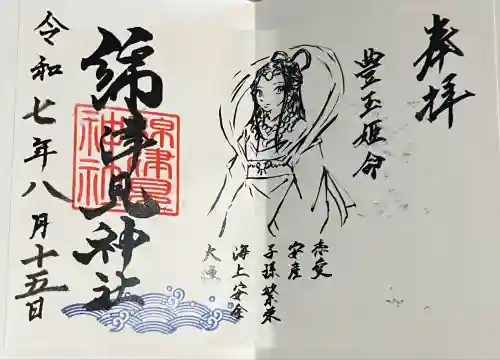 奉拝
豊玉姫命
恋愛
安産
子孫繁栄
海上安全
大漁
綿津見神社
綿津見
神社
令和七年八月十五日